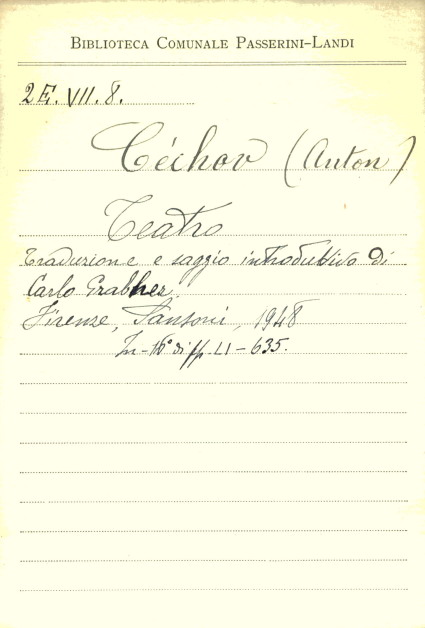 BIBLIOTECA COMUNALE PASSERINI-LANDI
2E. VII. 8.
Céchov (Anton)
Teatro
Traduzione e saggio introduttivo di
Carlo Grabher.
Firenze, Sansoni, 1948
In-16° di pp. LI-635.